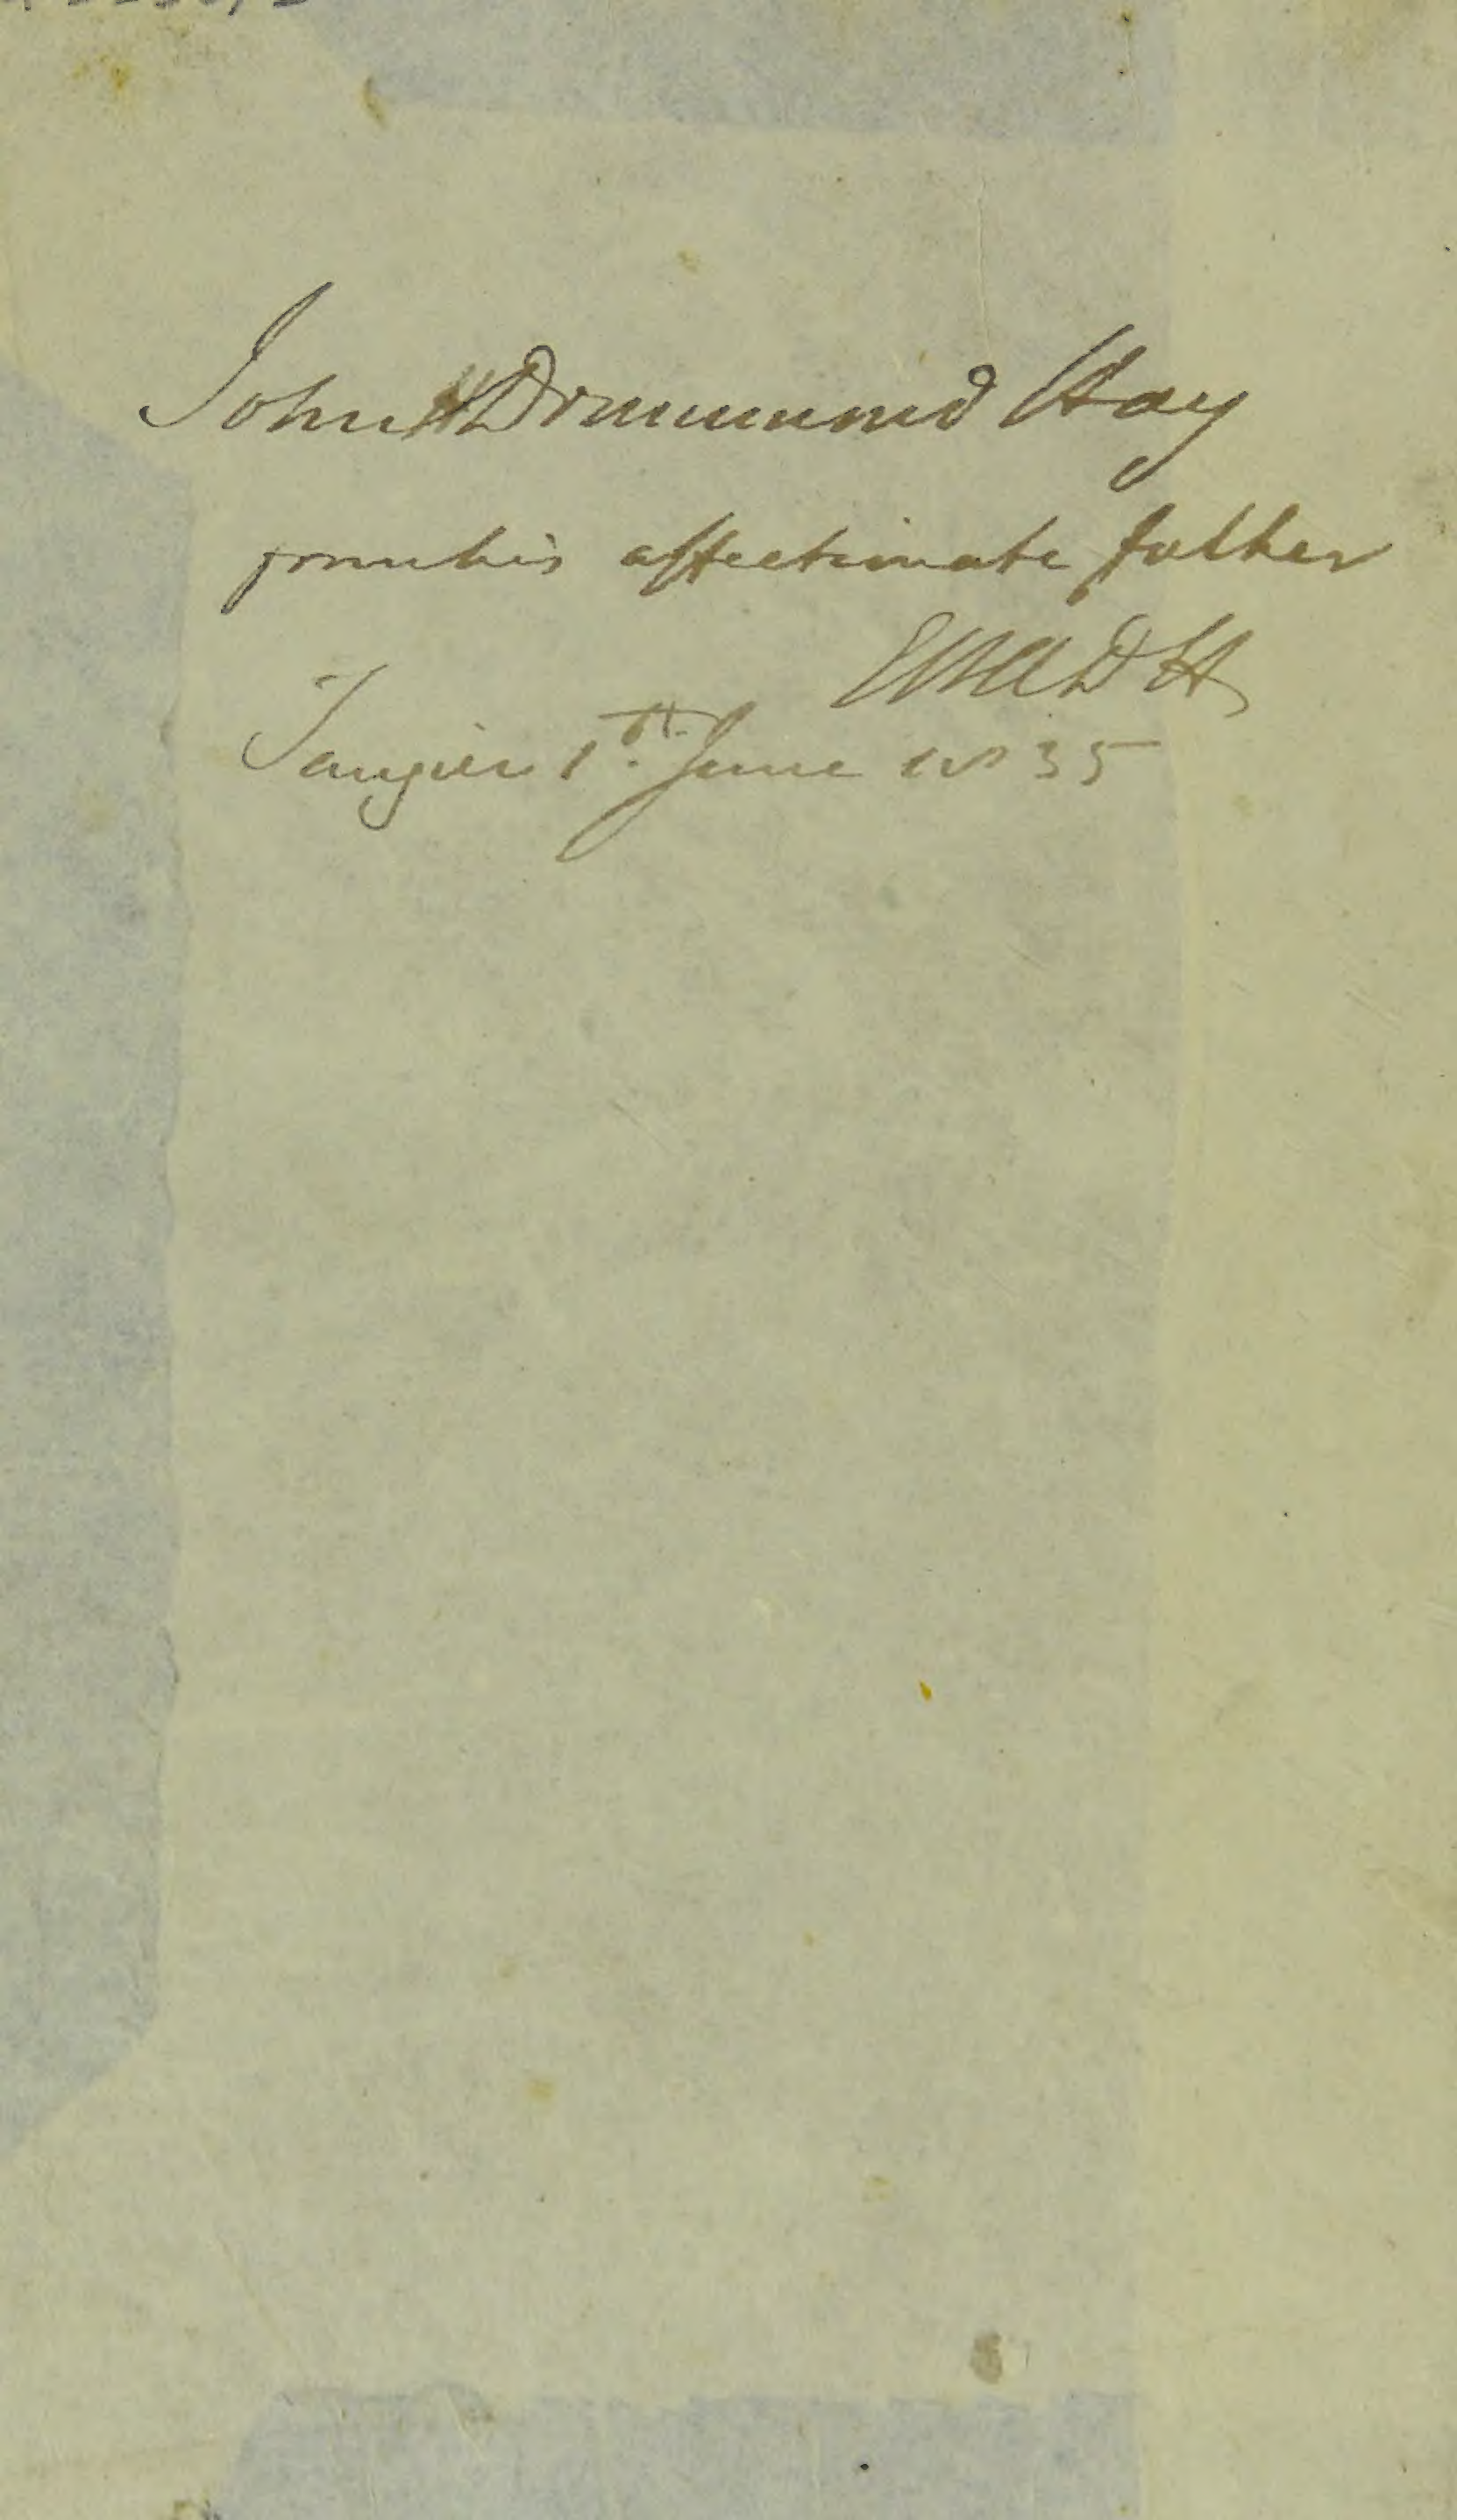 John Drummond Hay
from his affectionate father
EWADH
Tangier 1st. June 1835